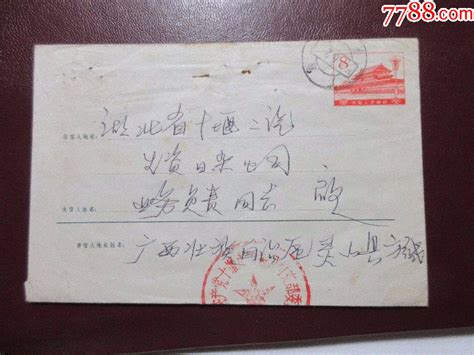 7788.com
8
中国人民邮政
收信人地址：
湖北省十堰二汽
劳资日杂公司
收信人姓名：
业务负责同志 启
寄信人地址姓名：
广西壮族自治区灵山县